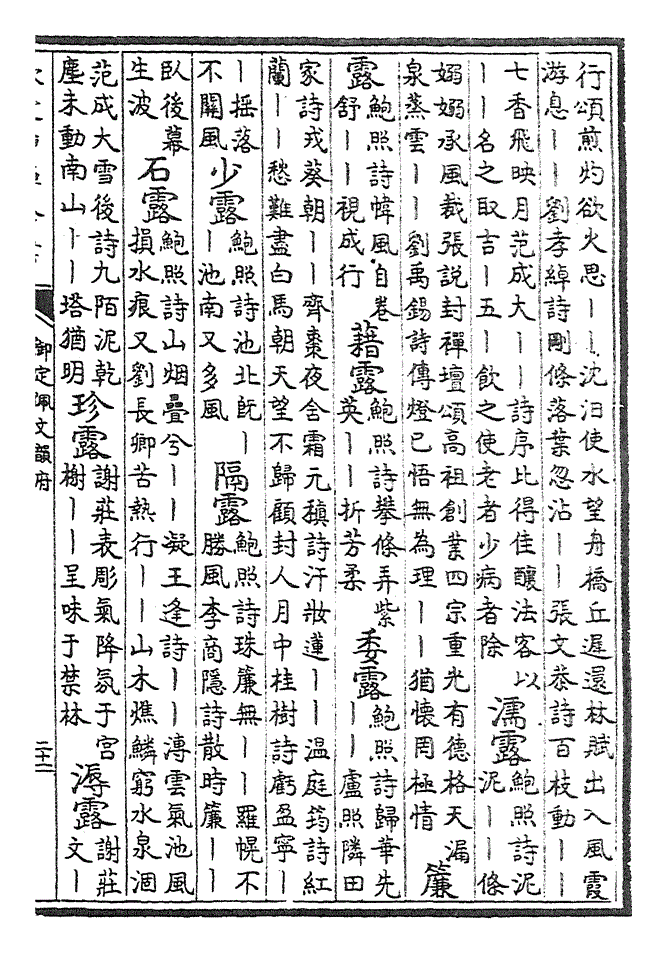 行頌煎灼欲火思丨丨沈汨使水望舟橋丘遲還林賦出入風霞
游息丨丨劉孝綽詩剛條落葉忽沾丨丨張文恭詩百枝動丨丨
七香飛映月范成大丨丨詩序比得佳釀法客以
丨丨名之取吉丨五丨飲之使老者少病者除
濡露
鮑照詩泥
泥丨丨條
嫋嫋承風裁張說封禪壇頌高祖創業四宗重光有德格天漏
泉蒸雲丨丨劉禹錫詩傳燈已悟無為理丨丨猶懷罔極情
簾
露
鮑照詩幃風自卷
舒丨丨視成行
藉露
鮑照詩攀條弄紫
英丨丨折芳柔
委露
鮑照詩歸華先
丨丨盧照隣田
家詩戎葵朝丨丨齊棗夜含霜元稹詩汗妝蓮丨丨溫庭筠詩紅
蘭丨丨愁難盡白馬朝天望不歸顧封人月中桂樹詩虧盈寧丨
丨摇落
不關風
少露
鮑照詩池北旣丨
丨池南又多風
隔露
鮑照詩珠簾無丨丨羅幌不
勝風李商隱詩散時簾丨丨
臥後幕
生波
石露
鮑照詩山烟疊兮丨丨凝王逢詩丨丨漙雲氣池風
損水痕又劉長卿苦熱行丨丨山木燋鱗窮水泉涸
范成大雪後詩九陌泥乾
塵未動南山丨丨塔猶明
珍露
謝莊表彫氣降氛于宮
榭丨丨呈味于禁林
溽露
謝莊
文丨
御定佩文韻府
二十二